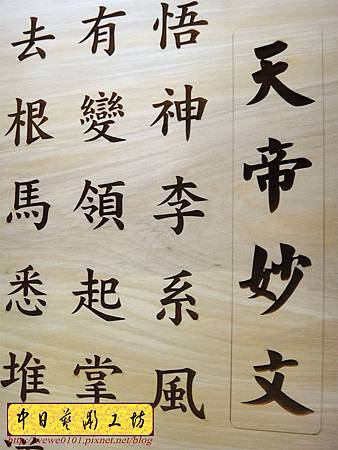 天帝妙文
悟神李系風
有變領起掌
去根馬悉堆
中日藝彫工坊
http://wewe0101.pixnet.net/blog